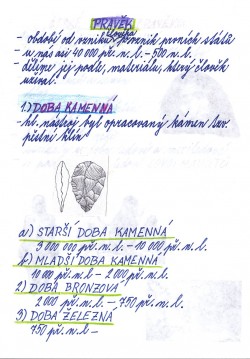 PRAVĚK
- období od vzniku člověka vznik prvních států
- u nás asi 40 000 př. n. l. - 500 n. l.
- dělíme jej podle, materiálu, který člověk
užíval.
1.) DOBA KAMENNÁ
- hl. nástroj byl opracovaný kámen tzv.
pěstní klín
a) STARŠÍ DOBA KAMENNÁ
3 000 000 př. n. l. - 10 000 př. n. l.
b) MLADŠÍ DOBA KAMENNÁ
10 000 př. n. l - 2 000 př. n. l.
2) DOBA BRONZOVÁ
2 000 př. n. l. - 750 př. n. l.
3) DOBA ŽELEZNÁ
750 př. n. l -